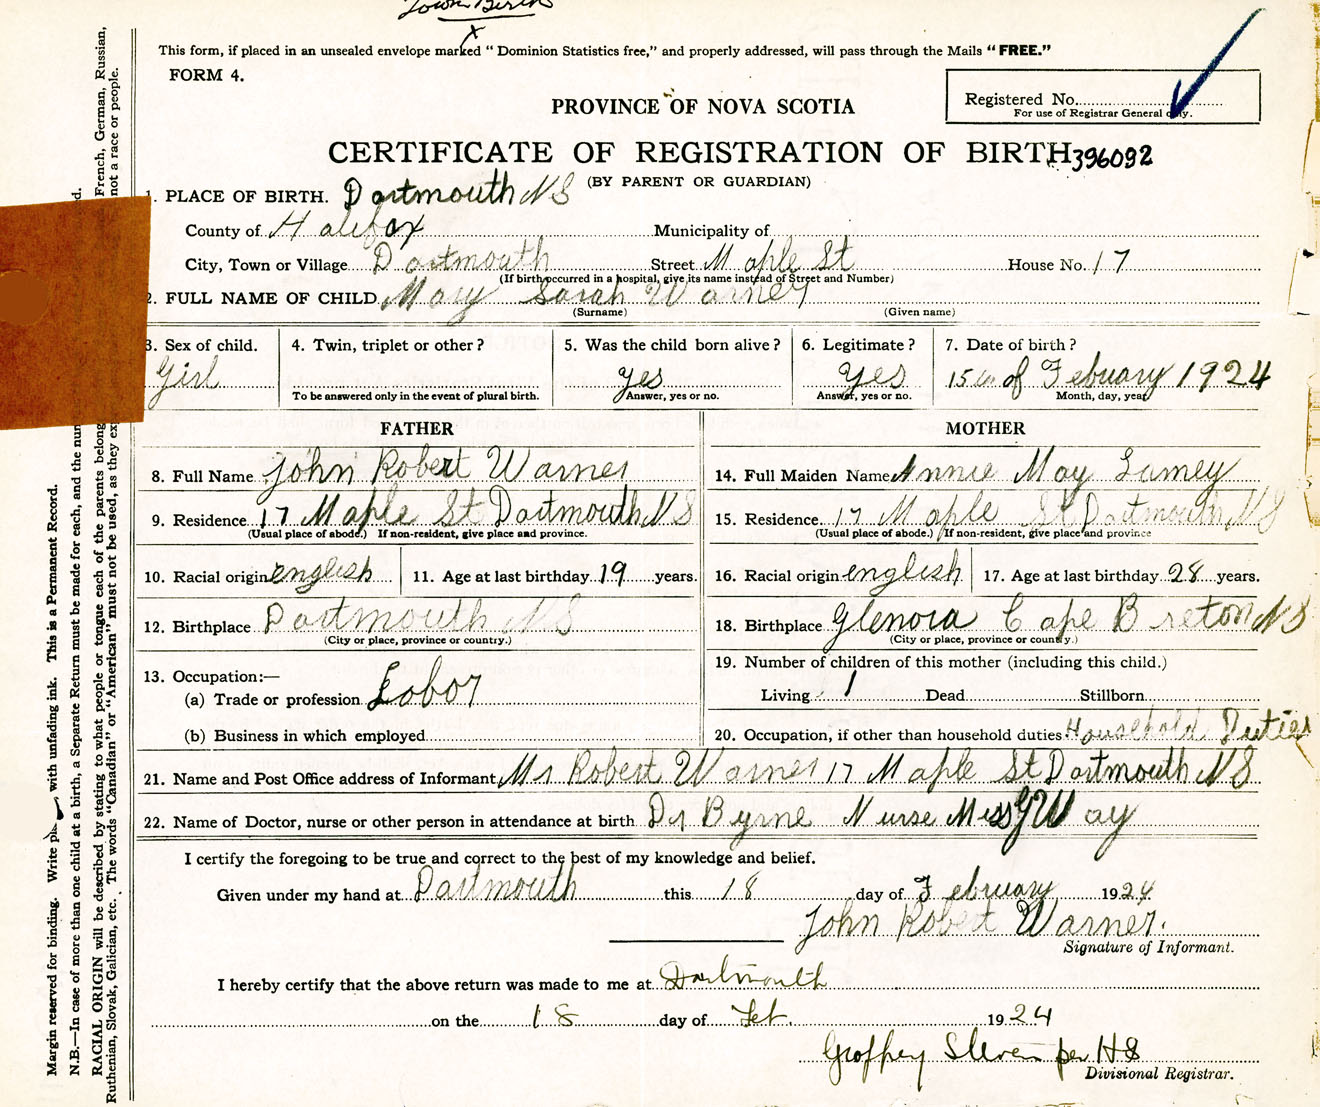 Town Birth
This form, if placed in an unsealed envelope marked “Dominion Statistics free,” and properly addressed, will pass through the Mails “FREE.”
FORM 4.
Registered No.
For use of Registrar General only.
PROVINCE OF NOVA SCOTIA
CERTIFICATE OF REGISTRATION OF BIRTH 396092
(BY PARENT OR GUARDIAN)
1. PLACE OF BIRTH. Dartmouth NS
County of Halifax Municipality of
City, Town or Village Dartmouth Street Maple St House No. 17
(If birth occurred in a hospital, give its name instead of Street and Number)
2. FULL NAME OF CHILD Mary Sarah Warner
(Surname) (Given name)
3. Sex of child. 4. Twin, triplet or other? 5. Was the child born alive? 6. Legitimate? 7. Date of birth?
Girl yes yes 15th of Febuary 1924
To be answered only in the event of plural birth. Answer, yes or no. Answer, yes or no. Month, day, year
FATHER MOTHER
8. Full Name John Robert Warner 14. Full Maiden Name Annie May Lamey
9. Residence 17 Maple St Dartmouth NS 15. Residence 17 Maple St Dartmouth NS
(Usual place of abode.) If non-resident, give place and province. (Usual place of abode.) If non-resident, give place and province
10. Racial origin english 11. Age at last birthday 19 years. 16. Racial origin english 17. Age at last birthday 28 years.
12. Birthplace Dartmouth NS 18. Birthplace Glenora Cape Breton NS
(City or place, province or country.) (City or place, province or country.)
13. Occupation:— 19. Number of children of this mother (including this child.)
(a) Trade or profession Labor Living 1 Dead Stillborn
(b) Business in which employed 20. Occupation, if other than household duties Household Duties
21. Name and Post Office address of Informant Mr Robert Warner 17 Maple St Dartmouth NS
22. Name of Doctor, nurse or other person in attendance at birth Dr Byrne Nurse Miss G Way
I certify the foregoing to be true and correct to the best of my knowledge and belief.
Given under my hand at Dartmouth this 18 day of February 1924
John Robert Warner.
Signature of Informant.
I hereby certify that the above return was made to me at Dartmouth
on the 18 day of Feb. 1924
Geoffrey Steven per HS
Divisional Registrar.
Margin reserved for binding. Write with unfading ink. This is a Permanent Record.
N.B.—In case of more than one child at a birth, a Separate Return must be made for each, and the
RACIAL ORIGIN will be described by stating to what people or tongue each of the parents belong French, German, Russian,
Ruthenian, Slovak, Galician, etc. The words “Canadian” or “American” must not be used, as they not a race or people.